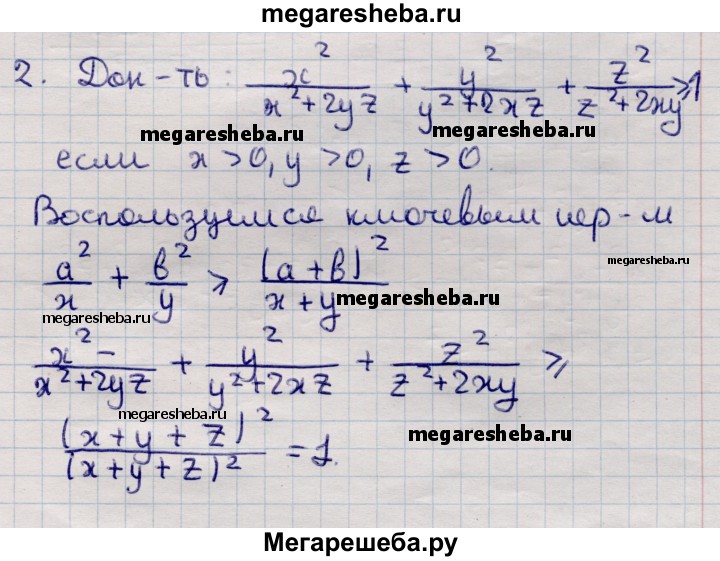 megaresheba.ru
2. Док-ть: x²/(x²+2yz) + y²/(y²+2xz) + z²/(z²+2xy) ≥ 1
megaresheba.ru megaresheba.ru
если x>0, y>0, z>0.
Воспользуемся ключевым нер-м
a²/x + b²/y ≥ (a+b)²/(x+y)
megaresheba.ru
megaresheba.ru megaresheba.ru
x²/(x²+2yz) + y²/(y²+2xz) + z²/(z²+2xy) ≥
megaresheba.ru
(x+y+z)²/(x+y+z)² = 1.
megaresheba.ru
Мегарешеба.ру